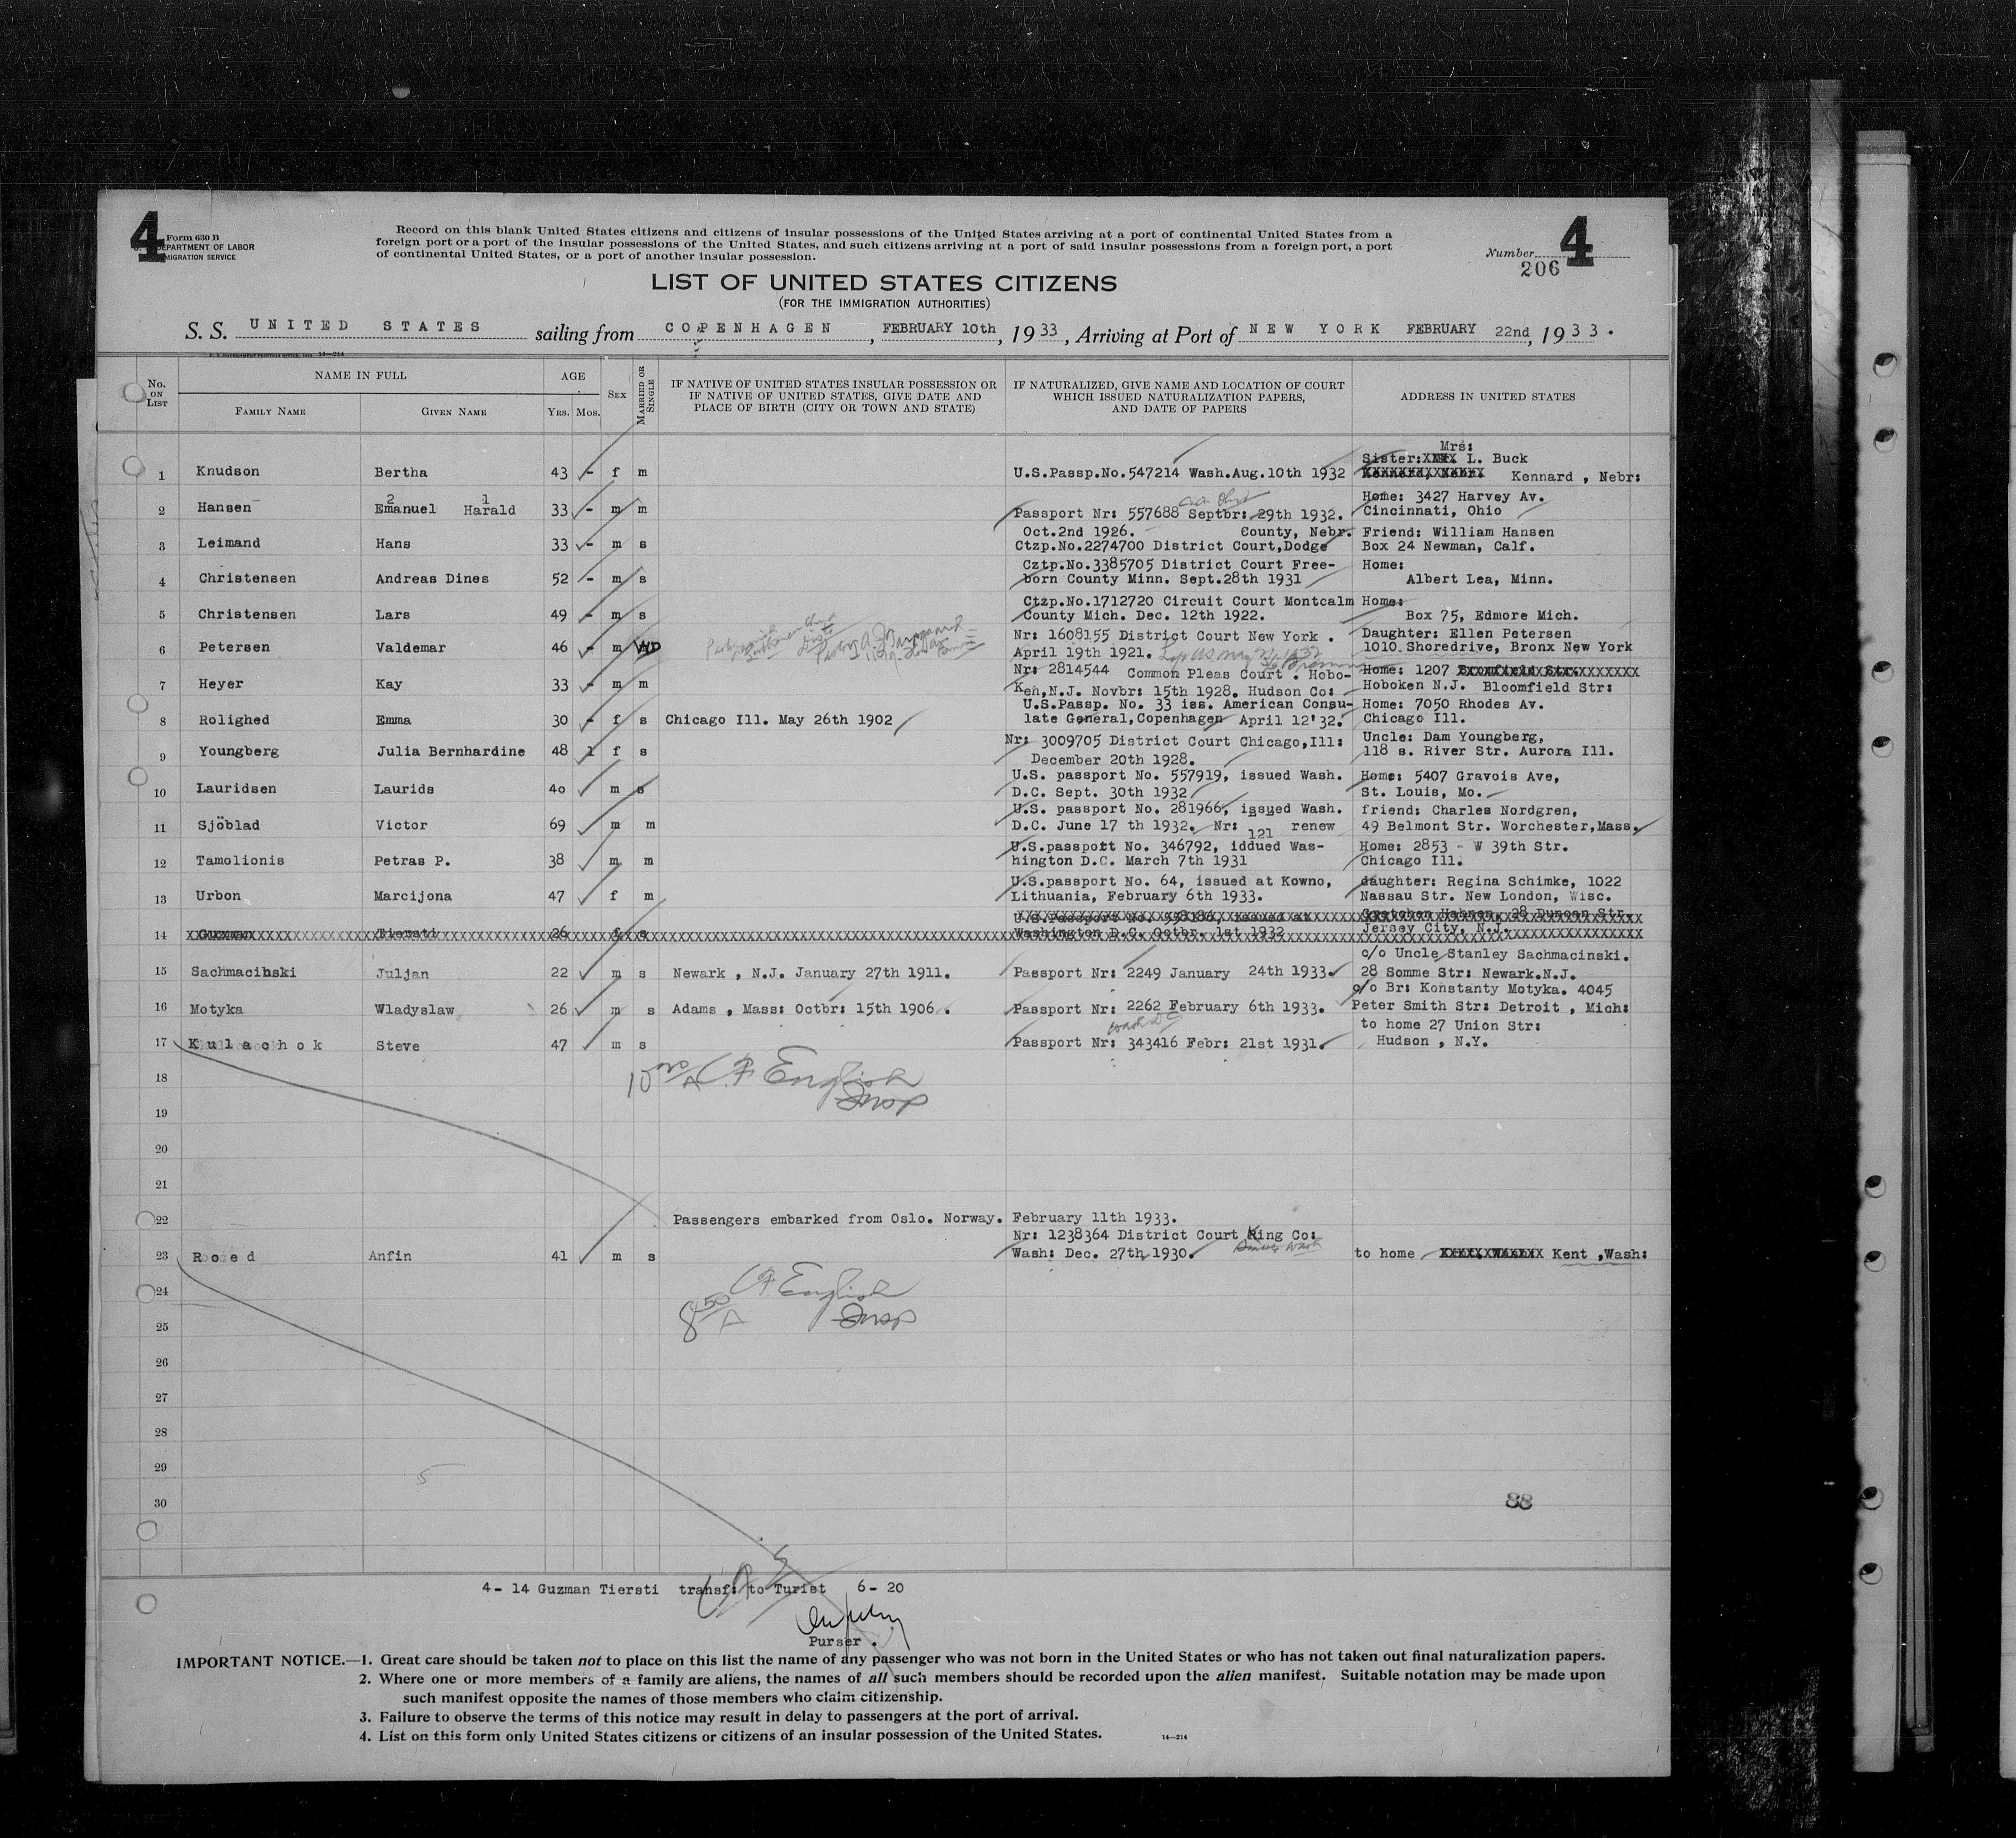 4
Form 630 B
DEPARTMENT OF LABOR
MIGRATION SERVICE
Record on this blank United States citizens and citizens of insular possessions of the United States arriving at a port of continental United States from a
foreign port or a port of the insular possessions of the United States, and such citizens arriving at a port of said insular possessions from a foreign port, a port
of continental United States, or a port of another insular possession.
Number 4
206
LIST OF UNITED STATES CITIZENS
(FOR THE IMMIGRATION AUTHORITIES)
S. S. UNITED STATES sailing from COPENHAGEN, FEBRUARY 10th, 1933, Arriving at Port of NEW YORK FEBRUARY 22nd, 1933.
14—214
No. ON LIST
NAME IN FULL
FAMILY NAME
GIVEN NAME
AGE
YRS. MOS.
SEX
MARRIED OR SINGLE
IF NATIVE OF UNITED STATES INSULAR POSSESSION OR
IF NATIVE OF UNITED STATES, GIVE DATE AND
PLACE OF BIRTH (CITY OR TOWN AND STATE)
IF NATURALIZED, GIVE NAME AND LOCATION OF COURT
WHICH ISSUED NATURALIZATION PAPERS,
AND DATE OF PAPERS
ADDRESS IN UNITED STATES
Mrs:
Sister: L. Buck
1 Knudson Bertha 43 - f m U.S.Passp.No.547214 Wash.Aug.10th 1932 Kennard , Nebr:
2 1
Home: 3427 Harvey Av.
2 Hansen Emanuel Harald 33 - m m Passport Nr: 557688 Septbr: 29th 1932. Cincinnati, Ohio
Oct.2nd 1926. County, Nebr. Friend: William Hansen
3 Leimand Hans 33 - m s Ctzp.No.2274700 District Court,Dodge Box 24 Newman, Calf.
Cztp.No.3385705 District Court Free- Home:
4 Christensen Andreas Dines 52 - m s born County Minn. Sept.28th 1931 Albert Lea, Minn.
Ctzp.No.1712720 Circuit Court Montcalm Home:
5 Christensen Lars 49 - m s County Mich. Dec. 12th 1922. Box 75, Edmore Mich.
Nr: 1608155 District Court New York . Daughter: Ellen Petersen
6 Petersen Valdemar 46 - m WD April 19th 1921. 1010 Shoredrive, Bronx New York
Nr: 2814544 Common Pleas Court . Hobo- Home: 1207 Bromfield Str.
7 Heyer Kay 33 - m m Ken,N.J. Novbr: 15th 1928. Hudson Co: Hoboken N.J. Bloomfield Str:
U.S.Passp. No. 33 iss. American Consu- Home: 7050 Rhodes Av.
8 Rolighed Emma 30 - f s Chicago Ill. May 26th 1902 late General,Copenhagen April 12'32. Chicago Ill.
Nr: 3009705 District Court Chicago,Ill: Uncle: Dam Youngberg,
9 Youngberg Julia Bernhardine 48 1 f s December 20th 1928. 118 s. River Str. Aurora Ill.
U.S. passport No. 557919, issued Wash. Home: 5407 Gravois Ave,
10 Lauridsen Laurids 40 m s D.C. Sept. 30th 1932 St. Louis, Mo.
U.S. passport No. 281966, issued Wash. friend: Charles Nordgren,
11 Sjöblad Victor 69 m m D.C. June 17 th 1932. Nr: 121 renew 49 Belmont Str. Worchester,Mass.
U.S.passport No. 346792, iddued Was- Home: 2853 - W 39th Str.
12 Tamolionis Petras P. 38 m m hington D.C. March 7th 1931 Chicago Ill.
U.S.passport No. 64, issued at Kowno, daughter: Regina Schimke, 1022
13 Urbon Marcijona 47 f m Lithuania, February 6th 1933. Nassau Str. New London, Wisc.
U.S.Passport No. 558186, issued at Gretchen Hahnen, 28 Duncan Str.
14 Guzman Tiersti 26 f s Washington D.C. Octbr. 1st 1932 Jersey City, N.J.
c/o Uncle Stanley Sachmacinski.
15 Sachmacinski Juljan 22 m s Newark , N.J. January 27th 1911. Passport Nr: 2249 January 24th 1933. 28 Somme Str: Newark.N.J.
c/o Br: Konstanty Motyka. 4045
16 Motyka Wladyslaw 26 m s Adams , Mass: Octbr: 15th 1906 . Passport Nr: 2262 February 6th 1933. Peter Smith Str: Detroit , Mich:
Wash DC
to home 27 Union Str:
17 Kulachok Steve 47 m s Passport Nr: 343416 Febr: 21st 1931. Hudson , N.Y.
18
10 00 A English
Insp
19
20
21
22 Passengers embarked from Oslo. Norway. February 11th 1933.
Nr: 1238364 District Court King Co:
23 Roed Anfin 41 m s Wash: Dec. 27th 1930. to home Kent ,Wash:
24
8 50 A English
Insp
25
26
27
28
29
5
30
88
4- 14 Guzman Tiersti transf: to Turist 6- 20
Purser .
IMPORTANT NOTICE.—1. Great care should be taken not to place on this list the name of any passenger who was not born in the United States or who has not taken out final naturalization papers.
2. Where one or more members of a family are aliens, the names of all such members should be recorded upon the alien manifest. Suitable notation may be made upon
such manifest opposite the names of those members who claim citizenship.
3. Failure to observe the terms of this notice may result in delay to passengers at the port of arrival.
4. List on this form only United States citizens or citizens of an insular possession of the United States.
14—214